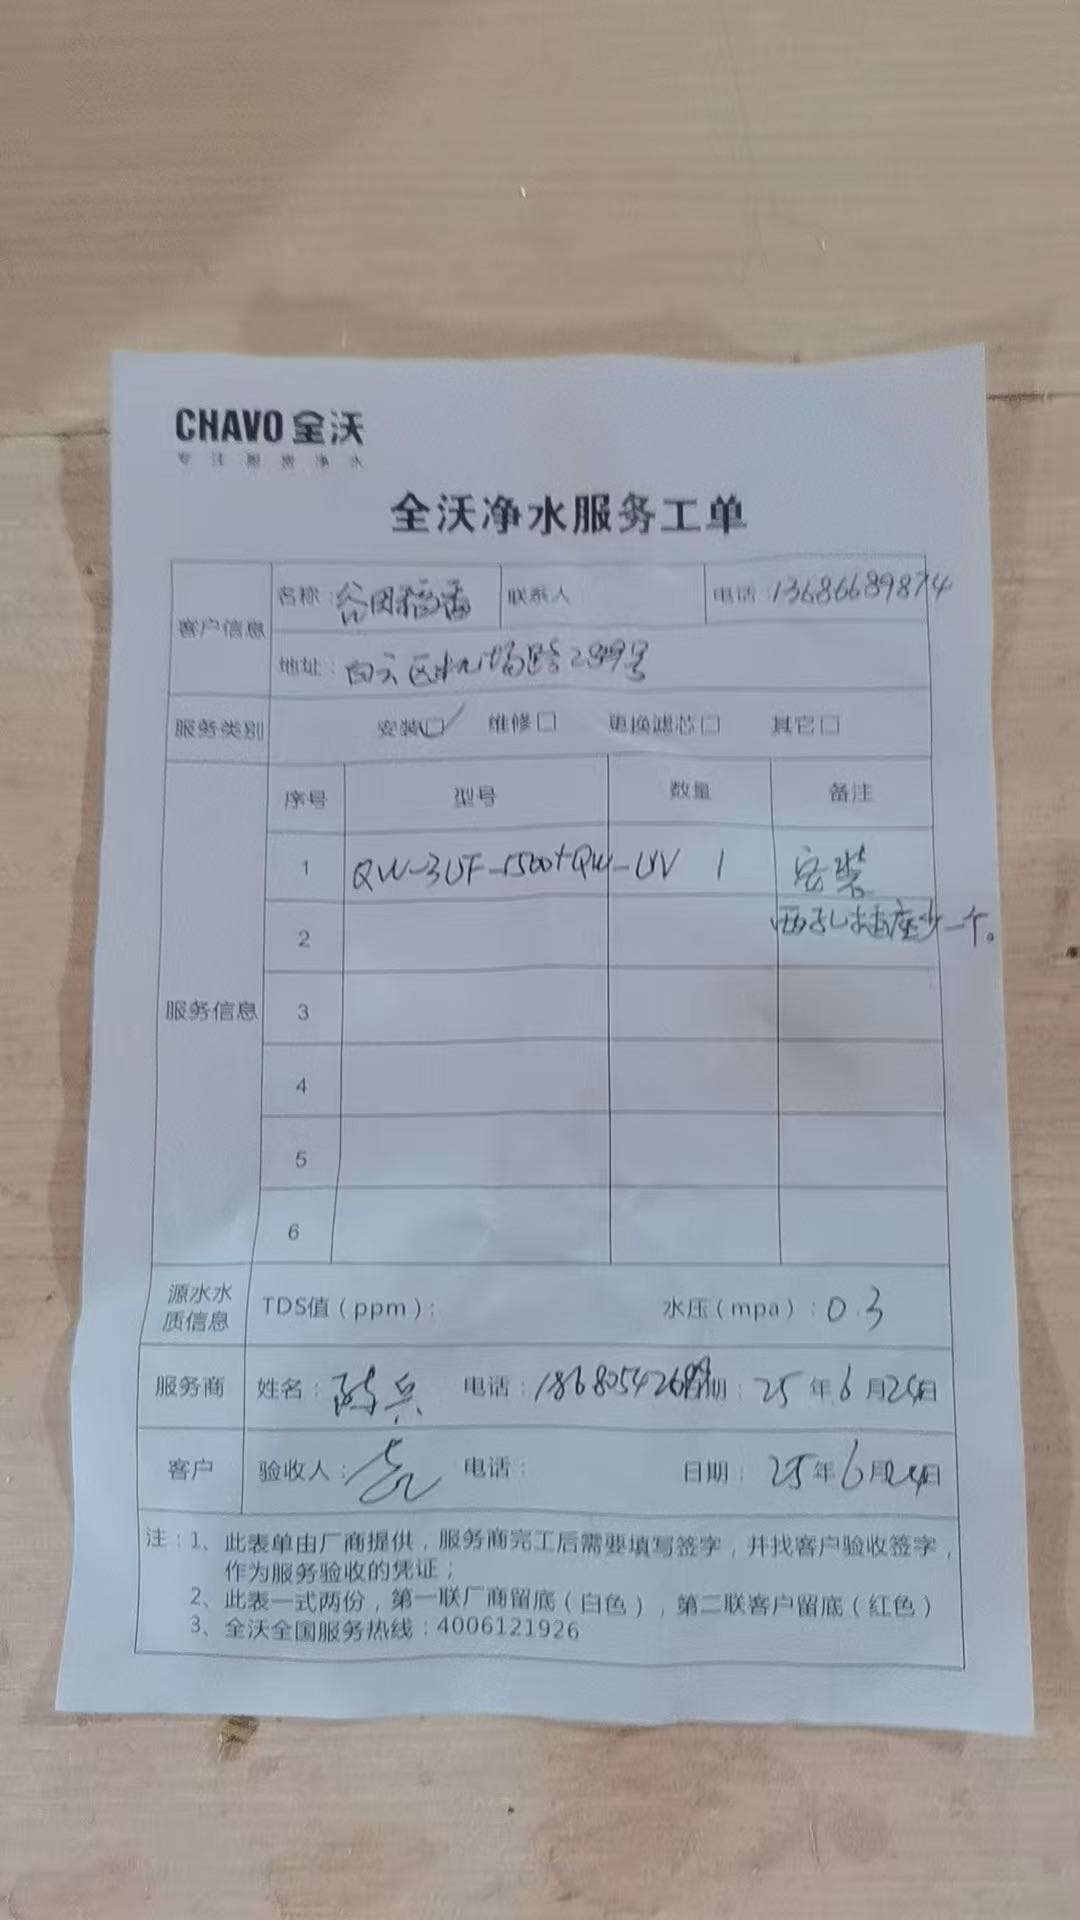 CHAVO 全沃
专注商务净水
全沃净水服务工单
客户信息
名称：谷田稻香 联系人 电话：13686689874
地址：白云区机场路2899号
服务类别 安装☑ 维修□ 更换滤芯□ 其它□
服务信息
序号 型号 数量 备注
1 QW-3UF-1500+QW-UV 1 安装
2 两孔插座少一个。
3
4
5
6
源水水质信息 TDS值（ppm）： 水压（mpa）：0.3
服务商 姓名：陈兵 电话： 日期：25年6月24日
客户 验收人： 电话： 日期：25年6月24日
注：1、此表单由厂商提供，服务商完工后需要填写签字，并找客户验收签字，
作为服务验收的凭证；
2、此表一式两份，第一联厂商留底（白色），第二联客户留底（红色）
3、全沃全国服务热线：4006121926